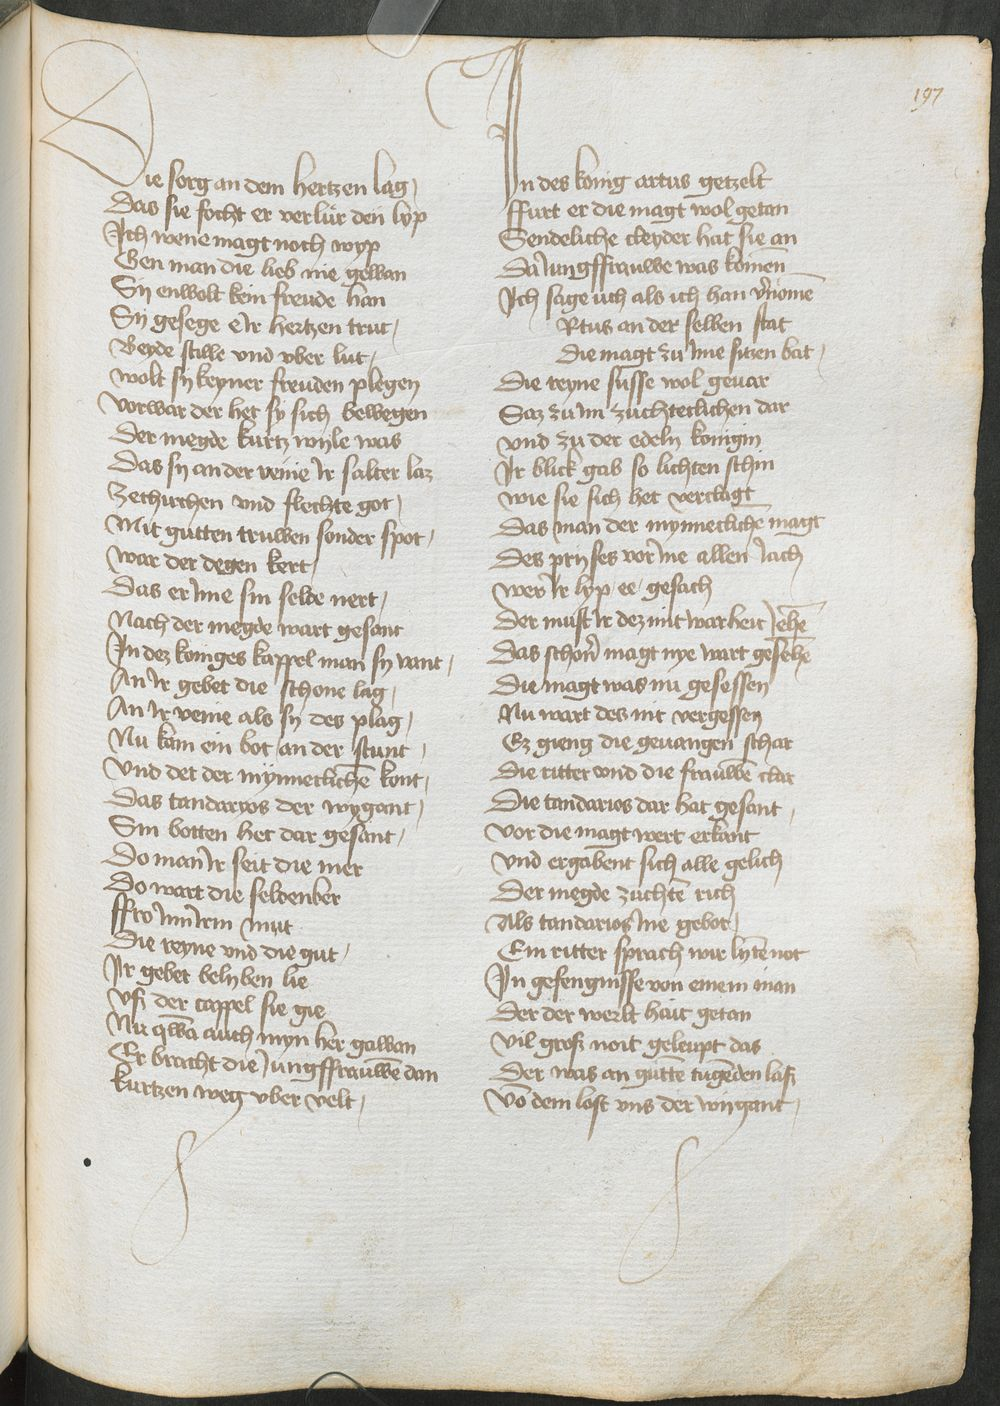 197
Die sorg an dem hertzen lag
Das sie focht er verlür den lyp
Ich wene magt noch wyp
Gen man die lieb nie gewan
Sij enwolt kein freude han
Sij gesege e ir hertzen trut
Beyde stille vnd vber lut
wolt sy keyner freuden plegen
vorwar der het sy sich bewegen
Der megde kurtz wyle was
Das sy an der venie ir salter laz
vnd flechte got
Mit gutten truwen sonder spot
war der degen kert
Das er ime sin selbe nert
Nach der megde wart gesant
In dez koniges kappel man sy vant
An ir gebet die schone lag
An ir venie als sy des plag
Nu kam ein bot an der stunt
Vnd det der mynneclichē kont
Das tandarios der wygant
Sin botten het dar gesant
Do man ir seit die mer
Do wart die seldenber
ffro in irm mut
Die reyne vnd die gut
Ir gebet belyben lie
Vß der cappel sie gie
Nu qwā auch myn her gawan
Er bracht die jungffrauwē dan
kurtzen weg vber velt
In des konig artus getzelt
ffurt er die magt wol getan
Sendeliche cleyder hat sie an
Da jungffrauwe was komen
Ich sage uch als ich han v'nomē
Rtus an der selben stat
Die magt zu ime sitzen bat
Die reyne susse wol gevar
Saz zu im zuchteclichen dar
vnd zu der edeln konigin
Ir blick gab so lichten schin
wie sie sich het verclagt
Das man der mynneclichē magt
Des pryses vor ine allen jach
wer ir lyp ee gesach
Der must ir dez mit warheit jehē
Das schon' magt nye wart gesehē
Die magt was nu gesessen
Nu wart des nit vergessen
Ez gieng die gevangen schar
Die ritter vnd die frauwē clar
Die tandarios dar hat gesant
vor die magt wert erkant
vnd ergabent sich alle gelich
Der megde zuchtē rich
Als tandarios ine gebot
Ein ritter sprach wir lytē not
In gefengnisse von einem man
Der der werlt hait getan
vil groß noit geleupt das
Der was an gutte tugēden laß
Vō dem lost vns der wygant